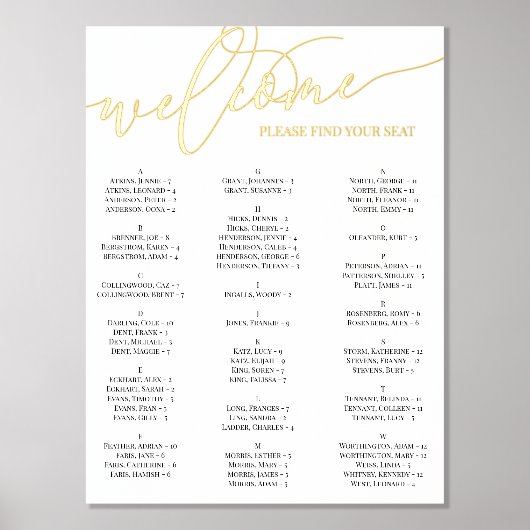 welcome
PLEASE FIND YOUR SEAT
A
Atkins, Jennie - 7
Atkins, Leonard - 4
Anderson, Peter - 2
Anderson, Oona - 2
B
Brenner, Joe - 8
Bergstrom, Karen - 4
bergstrom, Adam - 4
C
Collingwood, Caz - 7
Collingwood, Brent - 7
D
Darling, Cole - 10
Dent, Frank - 3
Dent, Michael - 3
Dent, Maggie - 7
E
Eckhart, Alex - 2
Eckhart, Sarah - 2
Evans, Timothy - 5
Evans, Fran - 5
Evans, Gilly - 5
F
Feather, Adrian - 10
Faris, Jane - 6
Faris, Catherine - 6
Faris, Hamish - 6
G
Grant, Johannes - 3
Grant, Susanne - 3
H
Hicks, Dennis - 2
Hicks, Cheryl - 2
Henderson, Jennie - 4
Henderson, Caleb - 4
Henderson, George - 6
Henderson, Tiffany - 3
I
Ingalls, Woody - 2
J
Jones, Frankie - 9
K
Katz, Lucy - 9
Katz, Elijah - 9
King, Soren - 7
King, Falissa - 7
L
Long, Frances - 7
Ling, Sandra - 2
Ladder, Charles - 4
M
Morris, Esther - 5
Morris, Mary - 5
Morris, James - 5
Morris, Adam - 5
N
North, George - 11
North, Frank - 11
North, Eleanor - 11
North, Emmy - 11
O
Oleander, Kurt - 5
P
Peterson, Adrian - 11
Patterson, Shelley - 5
Platt, James - 11
R
Rosenberg, Romy - 6
Rosenberg, Alex - 6
S
Storm, Katherine - 12
Stevens, Franny - 12
Stevens, Burt - 5
T
Tennant, Belinda - 11
Tennant, Colleen - 11
Tennant, Lucy - 5
W
Worthington, Adam - 12
Worthington, Mary - 12
Weiss, Linda - 5
Whitney, Kennedy - 12
West, Leonard - 4